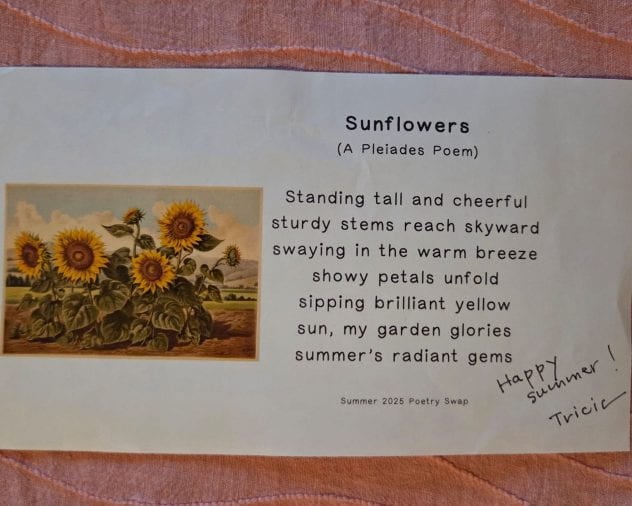 Sunflowers
(A Pleiades Poem)
Standing tall and cheerful
sturdy stems reach skyward
swaying in the warm breeze
showy petals unfold
sipping brilliant yellow
sun, my garden glories
summer's radiant gems
Summer 2025 Poetry Swap
Happy
summer!